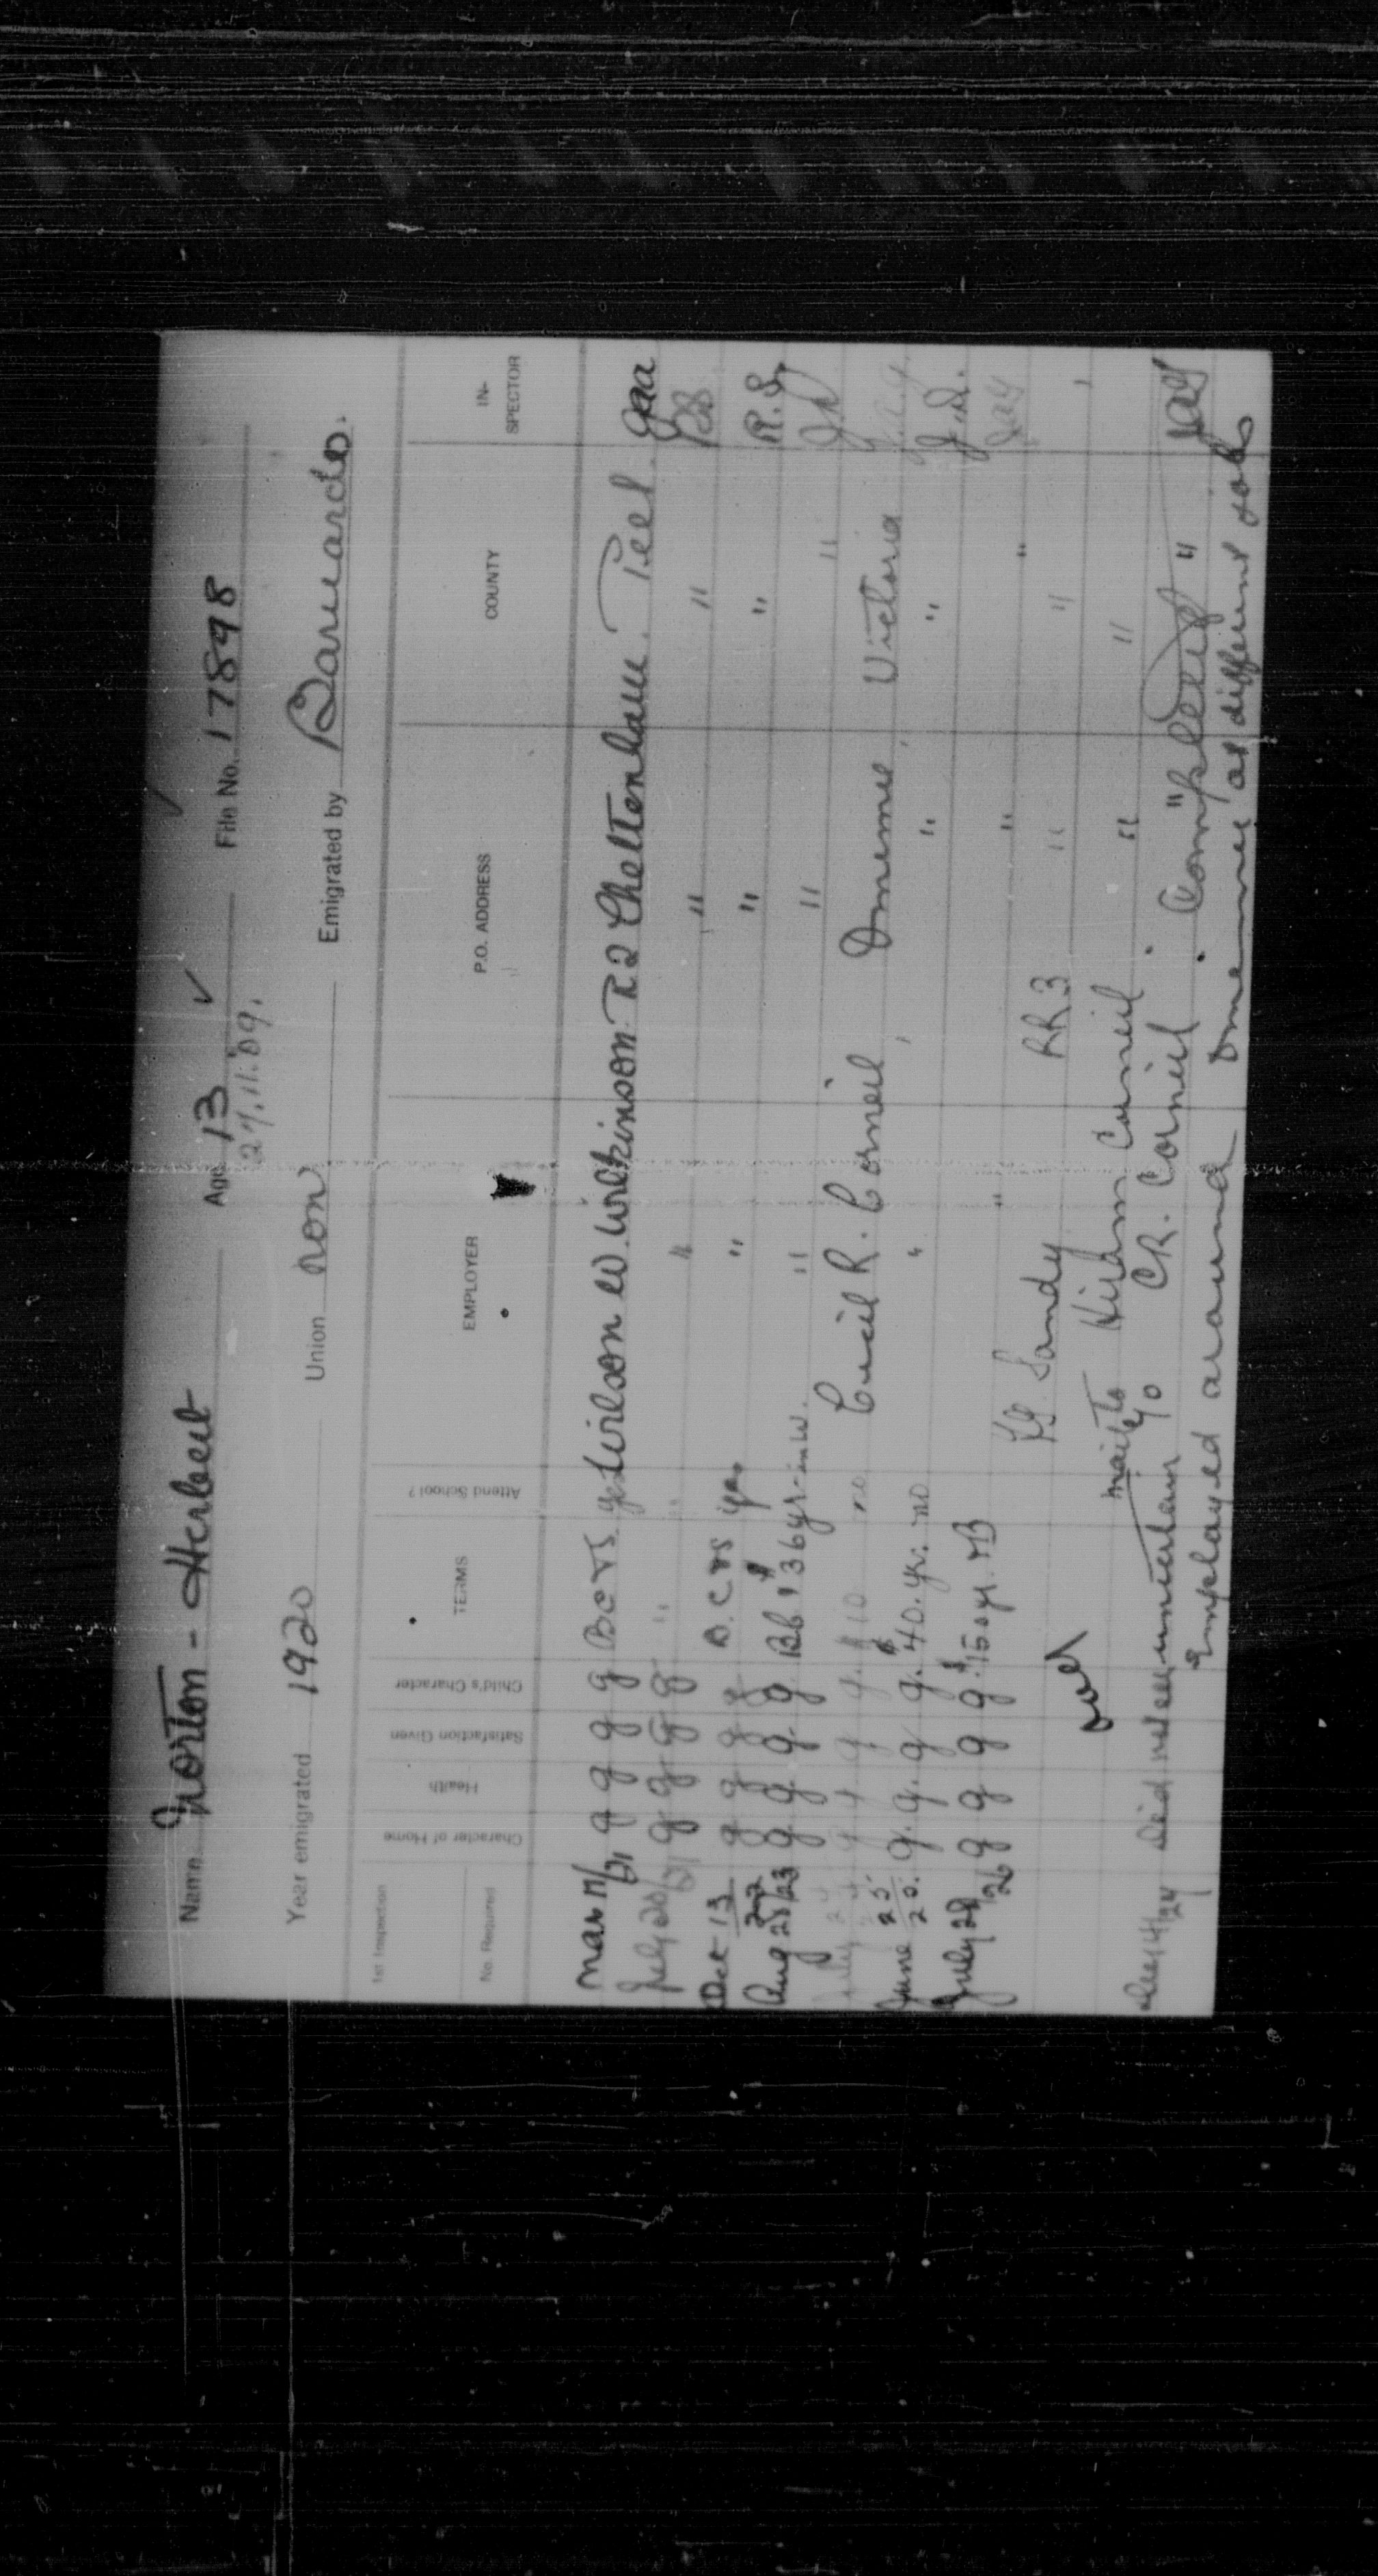 Name Norton - Herbert Age 13 ✓ File No. 17898
27.11.09.
Year emigrated 1920 Union non Emigrated by Barnardo.
1st Inspection
No. Required Character of Home Health Satisfaction Given Child's Character TERMS Attend School? EMPLOYER P.O. ADDRESS COUNTY IN-SPECTOR
Mar 17/21 g g g g B C & S yes Wilson W. Wilkinson R 2 Cheltenham Peel
July 20/21 g g g g " " " " "
Oct 13 g g g g B. C & S yes " " " R.S.
Aug 28/23 g g g g $136 yr " " "
g g g $110 no Cecil R. Corneil Omemee Victoria
June 25 25. g. g. g. g. $140. yr. no " " " J.D.
July 28/26 g g g g $150 yr. " " "
Sandy RR3 " "
over mail to Hiram Corneil " "
24 Did not see c/o C.R. Corneil. "Completed"
Employed around Omemee at different jobs